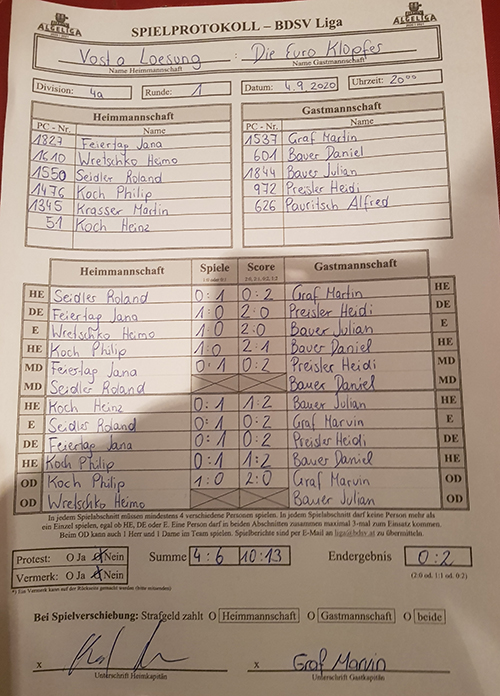 ALGELIGA SPIELPROTOKOLL – BDSV Liga ALGELIGA
Vosta Loesung : Die Euro Klopfer
Name Heimmannschaft Name Gastmannschaft
Division: 4a Runde: 1 Datum: 4.9.2020 Uhrzeit: 20⁰⁰
Heimmannschaft Gastmannschaft
PC - Nr. Name PC - Nr. Name
1827 Feiertag Jana 1537 Graf Martin
1610 Wretschko Heimo 601 Bauer Daniel
1550 Seidler Roland 1844 Bauer Julian
1476 Koch Philip 972 Preisler Heidi
1345 Krasser Martin 626 Pauritsch Alfred
51 Koch Heinz
Heimmannschaft Spiele Score Gastmannschaft
1:0 oder 0:1 2:0, 2:1, 0:2, 1:2
HE Seidler Roland 0:1 0:2 Graf Martin HE
DE Feiertag Jana 1:0 2:0 Preisler Heidi DE
E Wretschko Heimo 1:0 2:0 Bauer Julian E
HE Koch Philip 1:0 2:1 Bauer Daniel HE
MD Feiertag Jana 0:1 0:2 Preisler Heidi MD
MD Seidler Roland Bauer Daniel MD
HE Koch Heinz 0:1 1:2 Bauer Julian HE
E Seidler Roland 0:1 0:2 Graf Marvin E
DE Feiertag Jana 0:1 0:2 Preisler Heidi DE
HE Koch Philip 0:1 1:2 Bauer Daniel HE
OD Koch Philip 1:0 2:0 Graf Marvin OD
OD Wretschko Heimo Bauer Julian OD
In jedem Spielabschnitt müssen mindestens 4 verschiedene Personen spielen. In jedem Spielabschnitt darf keine Person mehr als
ein Einzel spielen, egal ob HE, DE oder E. Eine Person darf in beiden Abschnitten zusammen maximal 3-mal zum Einsatz kommen.
Beim OD kann auch 1 Herr und 1 Dame im Team spielen. Spielberichte sind per E-Mail an liga@bdsv.at zu übermitteln.
Protest: O Ja O Nein Summe 4:6 10:13 Endergebnis 0:2
Vermerk: O Ja O Nein (2:0 od. 1:1 od. 0:2)
*) Ein Vermerk kann auf der Rückseite gemacht werden
Bei Spielverschiebung: Strafgeld zahlt O Heimmannschaft O Gastmannschaft O beide
x x Graf Marvin
Unterschrift Heimkapitän Unterschrift Gastkapitän